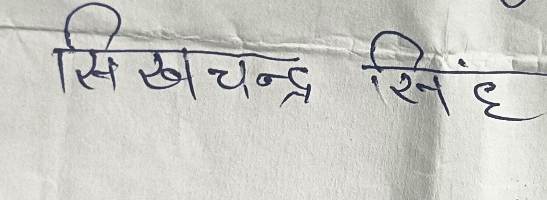 सिखचन्द्र सिंह